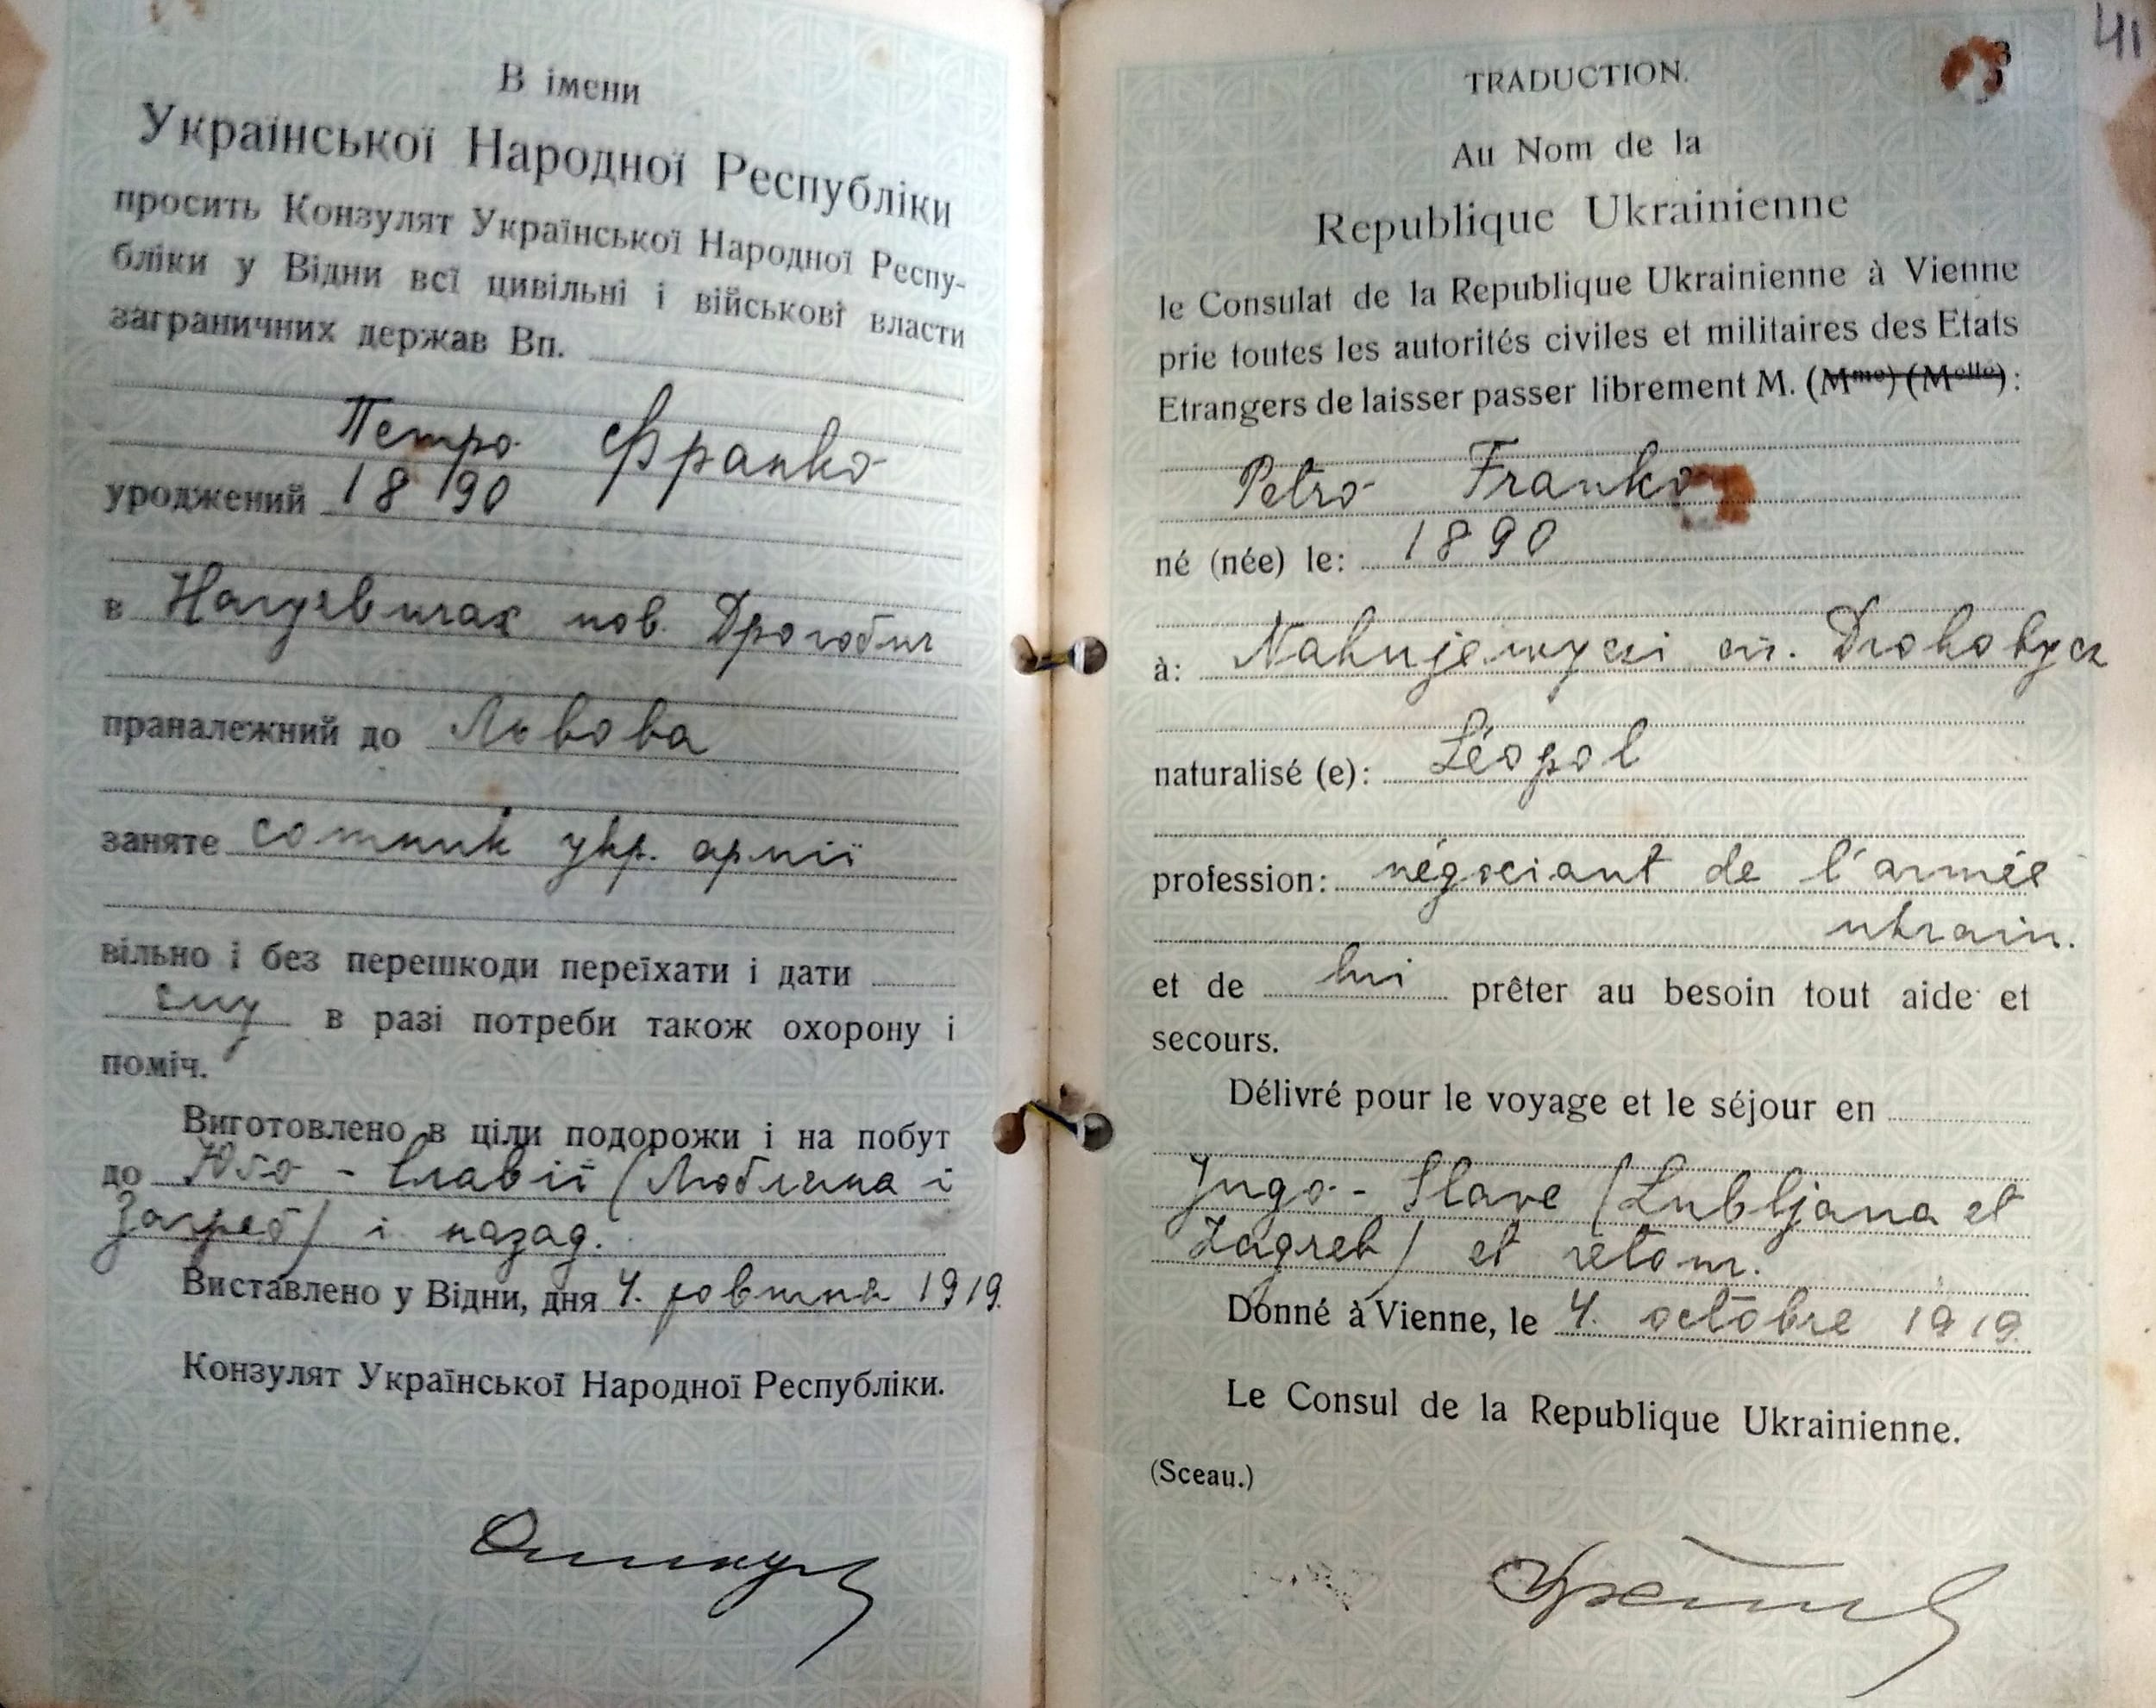 В імени
Української Народної Республіки
просить Конзулят Української Народної Респу-
бліки у Відни всї цивільні і військові власти
заграничних держав Вп.
Петро Франко
уроджений 1890
в Нагуєвичах пов. Дрогобич
праналежний до Львова
заняте сотник укр. армії
вільно і без перешкоди переїхати і дати
єму в разі потреби також охорону і
поміч.
Виготовлено в ціли подорожи і на побут
до Юго-Славії (Любляна і
Загреб) і назад.
Виставлено у Відни, дня 4. 1919.
Конзулят Української Народної Республіки.
41
TRADUCTION.
Au Nom de la
Republique Ukrainienne
le Consulat de la Republique Ukrainienne à Vienne
prie toutes les autorités civiles et militaires des Etats
Etrangers de laisser passer librement M. (Mme) (Melle):
Petro Franko
né (née) le: 1890
à: Nahujewyczi Drohobycz
naturalisé (e): Léopol
profession: négociant de l'armée
ukrain.
et de lui prêter au besoin tout aide et
secours.
Délivré pour le voyage et le séjour en
Jugo-Slave (Lubljana et
Zagreb) et retour.
Donné à Vienne, le 4. octobre 1919.
Le Consul de la Republique Ukrainienne.
(Sceau.)